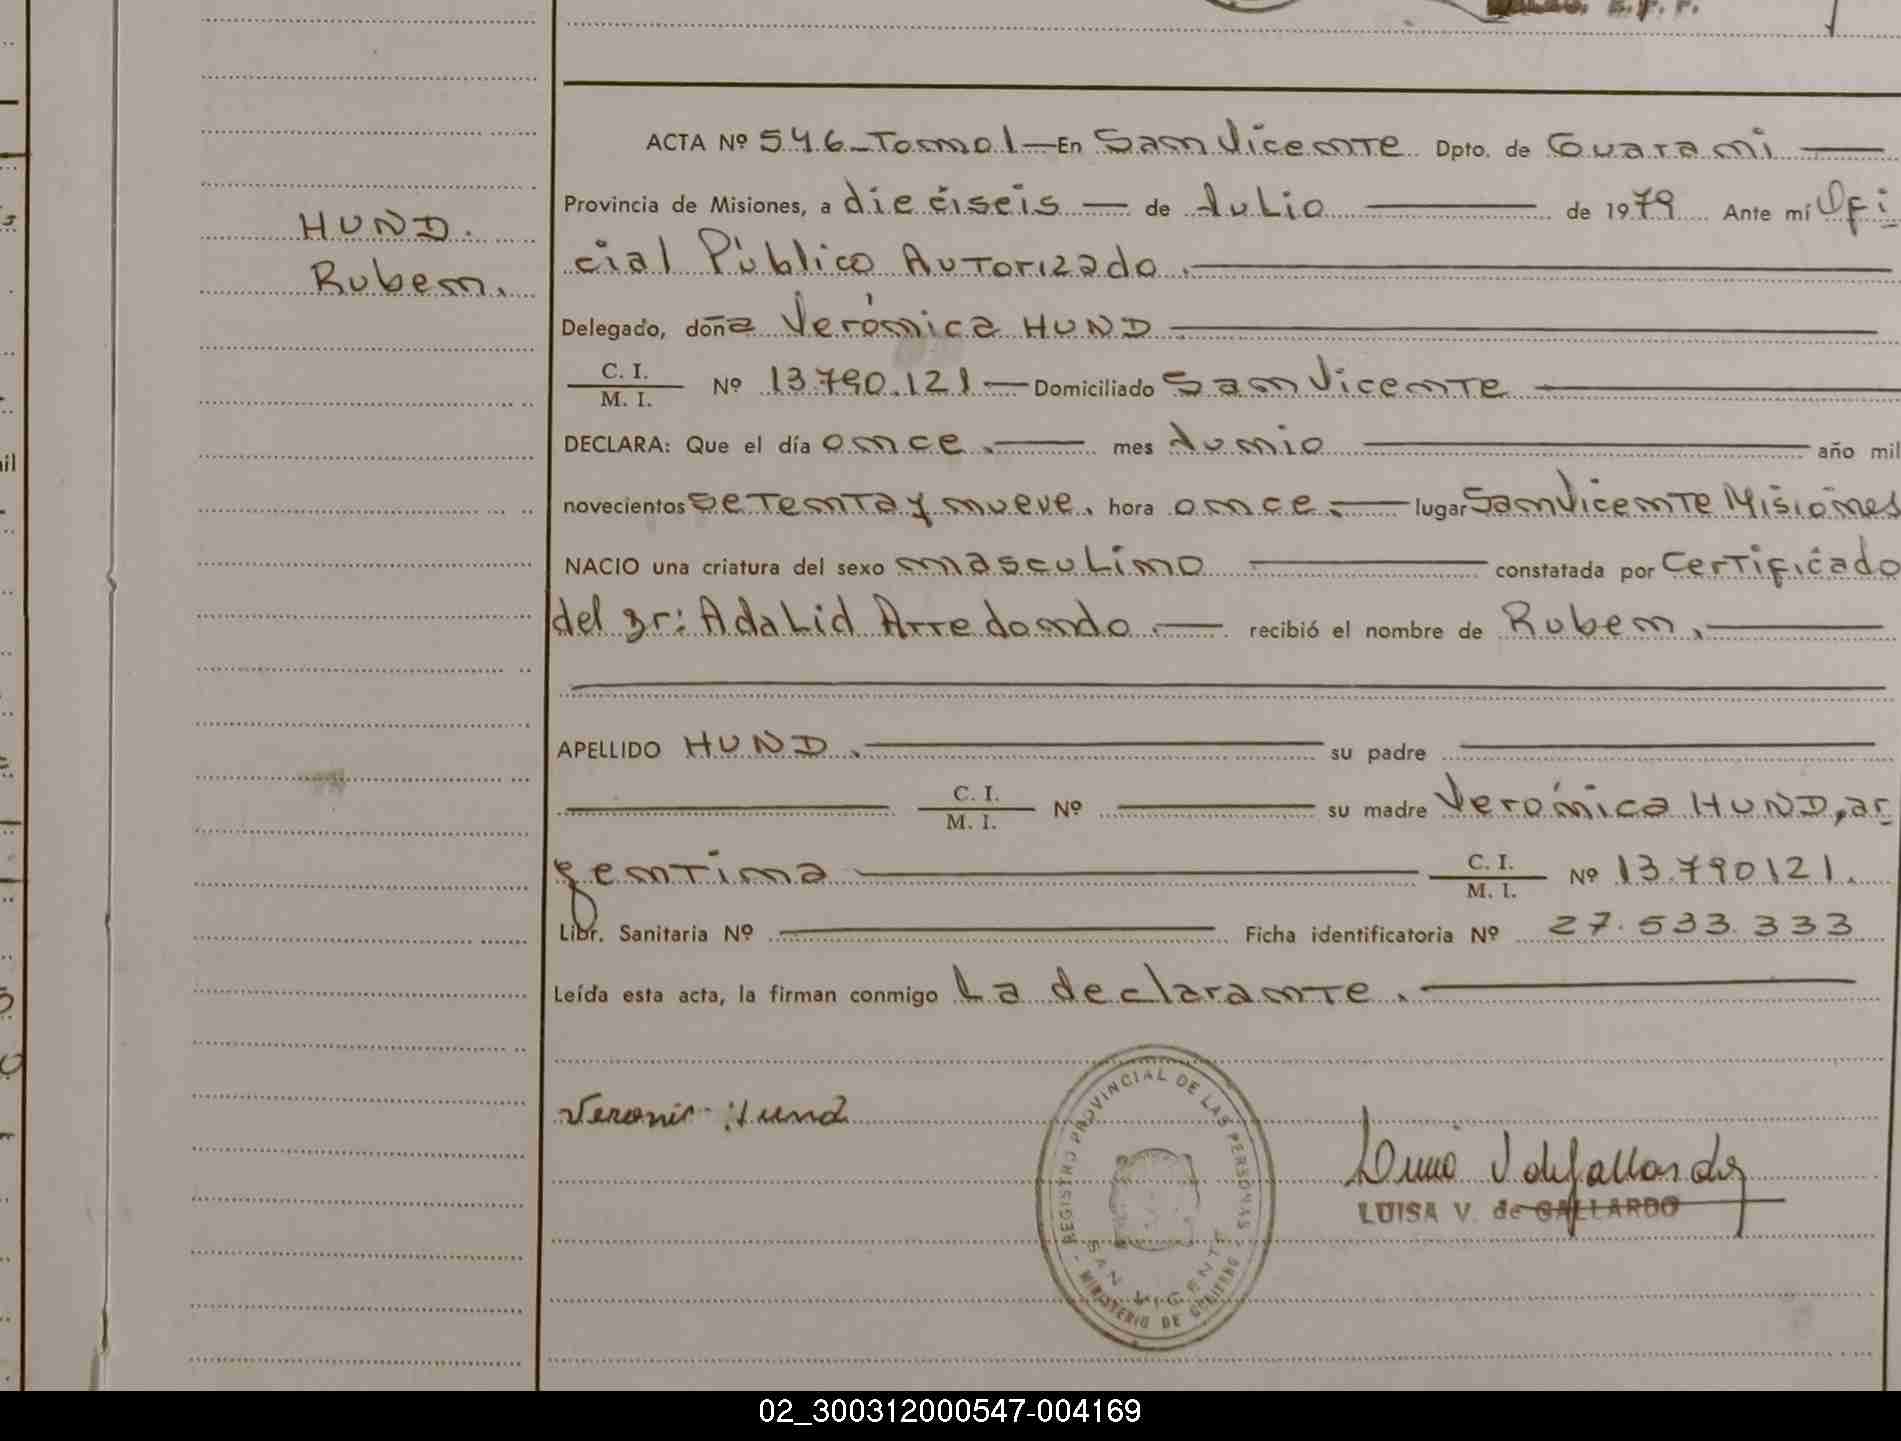 HUND.
Ruben.
ACTA Nº 546-Tomo1—En San Vicente Dpto. de Guaraní
Provincia de Misiones, a dieciseis — de Julio de 1979 Ante mí Ofi
cial Público Autorizado.
Delegado, doña Verónica HUND
C. I.
M. I. Nº 13.790.121 — Domiciliado San Vicente
DECLARA: Que el día once. mes Junio año mil
novecientos setenta y nueve. hora once. lugar San Vicente Misiones
NACIO una criatura del sexo masculino constatada por Certificado
del Dr: Adalid Arredondo recibió el nombre de Ruben.
APELLIDO HUND. su padre
C. I.
M. I. Nº su madre Verónica HUND, ar
gentina C. I.
M. I. Nº 13.790121.
Libr. Sanitaria Nº Ficha identificatoria Nº 27.533.333
Leída esta acta, la firman conmigo La declarante.
Hund
REGISTRO PROVINCIAL DE LAS PERSONAS
SAN VICENTE
MINISTERIO DE GOBIERNO
LUISA V. de GALLARDO
02_300312000547-004169